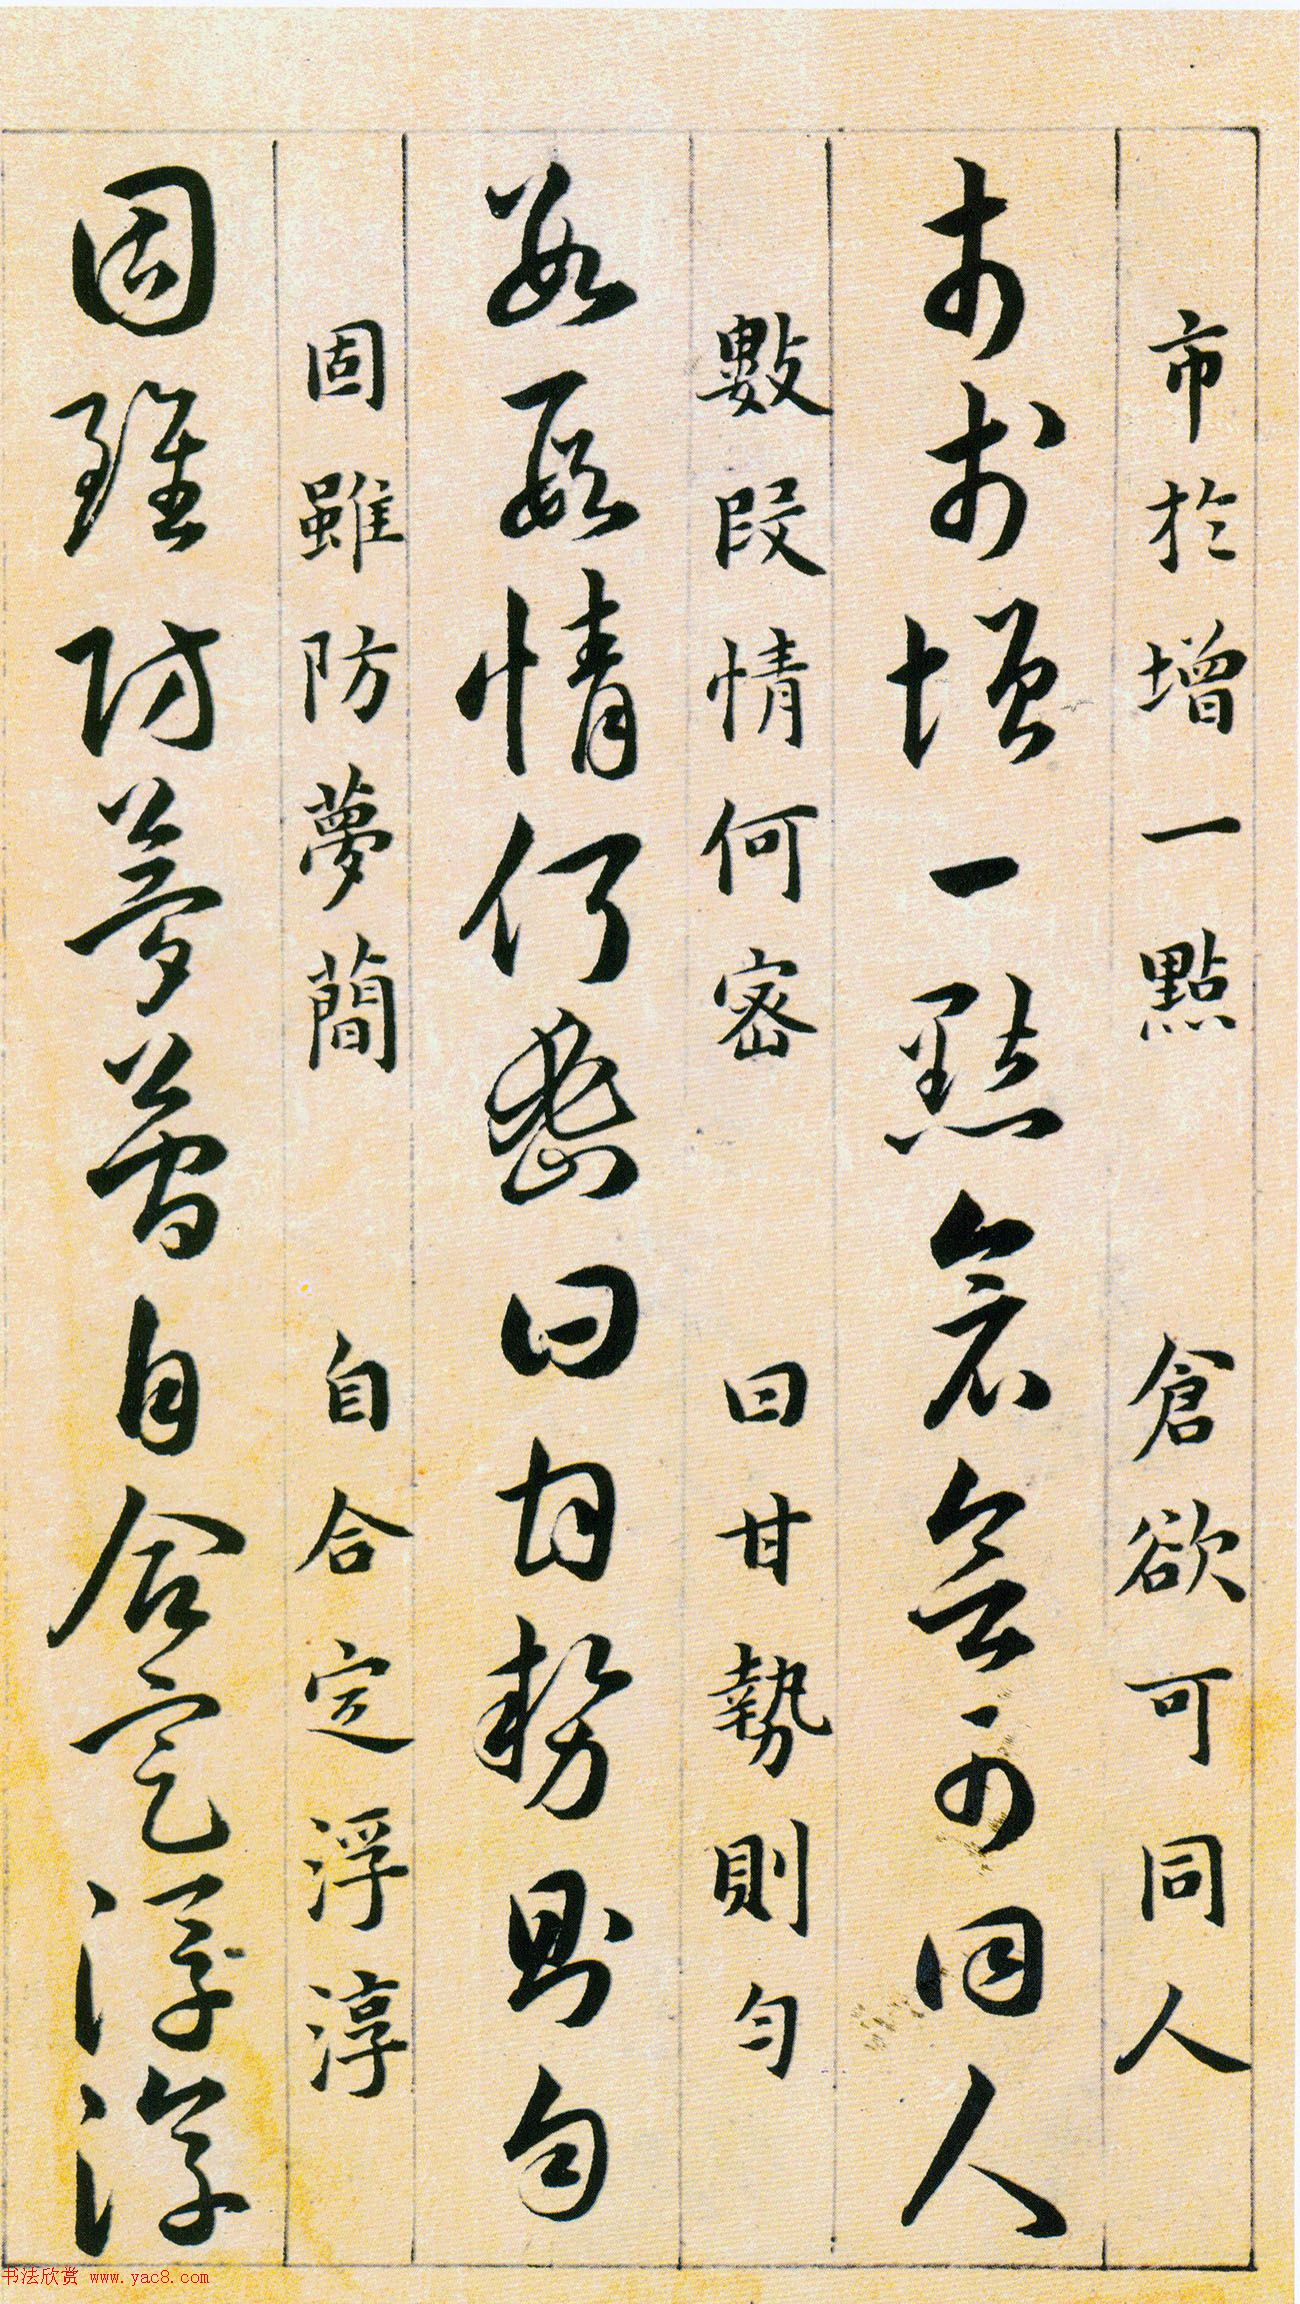 市於增一點 倉欲可同人
市於增一點倉欲可同人
數段情何密 曰甘勢則勻
數段情何密曰甘勢則勻
固雖防夢簡 自合定浮淳
固雖防夢簡自合定浮淳
书法欣赏 www.yac8.com